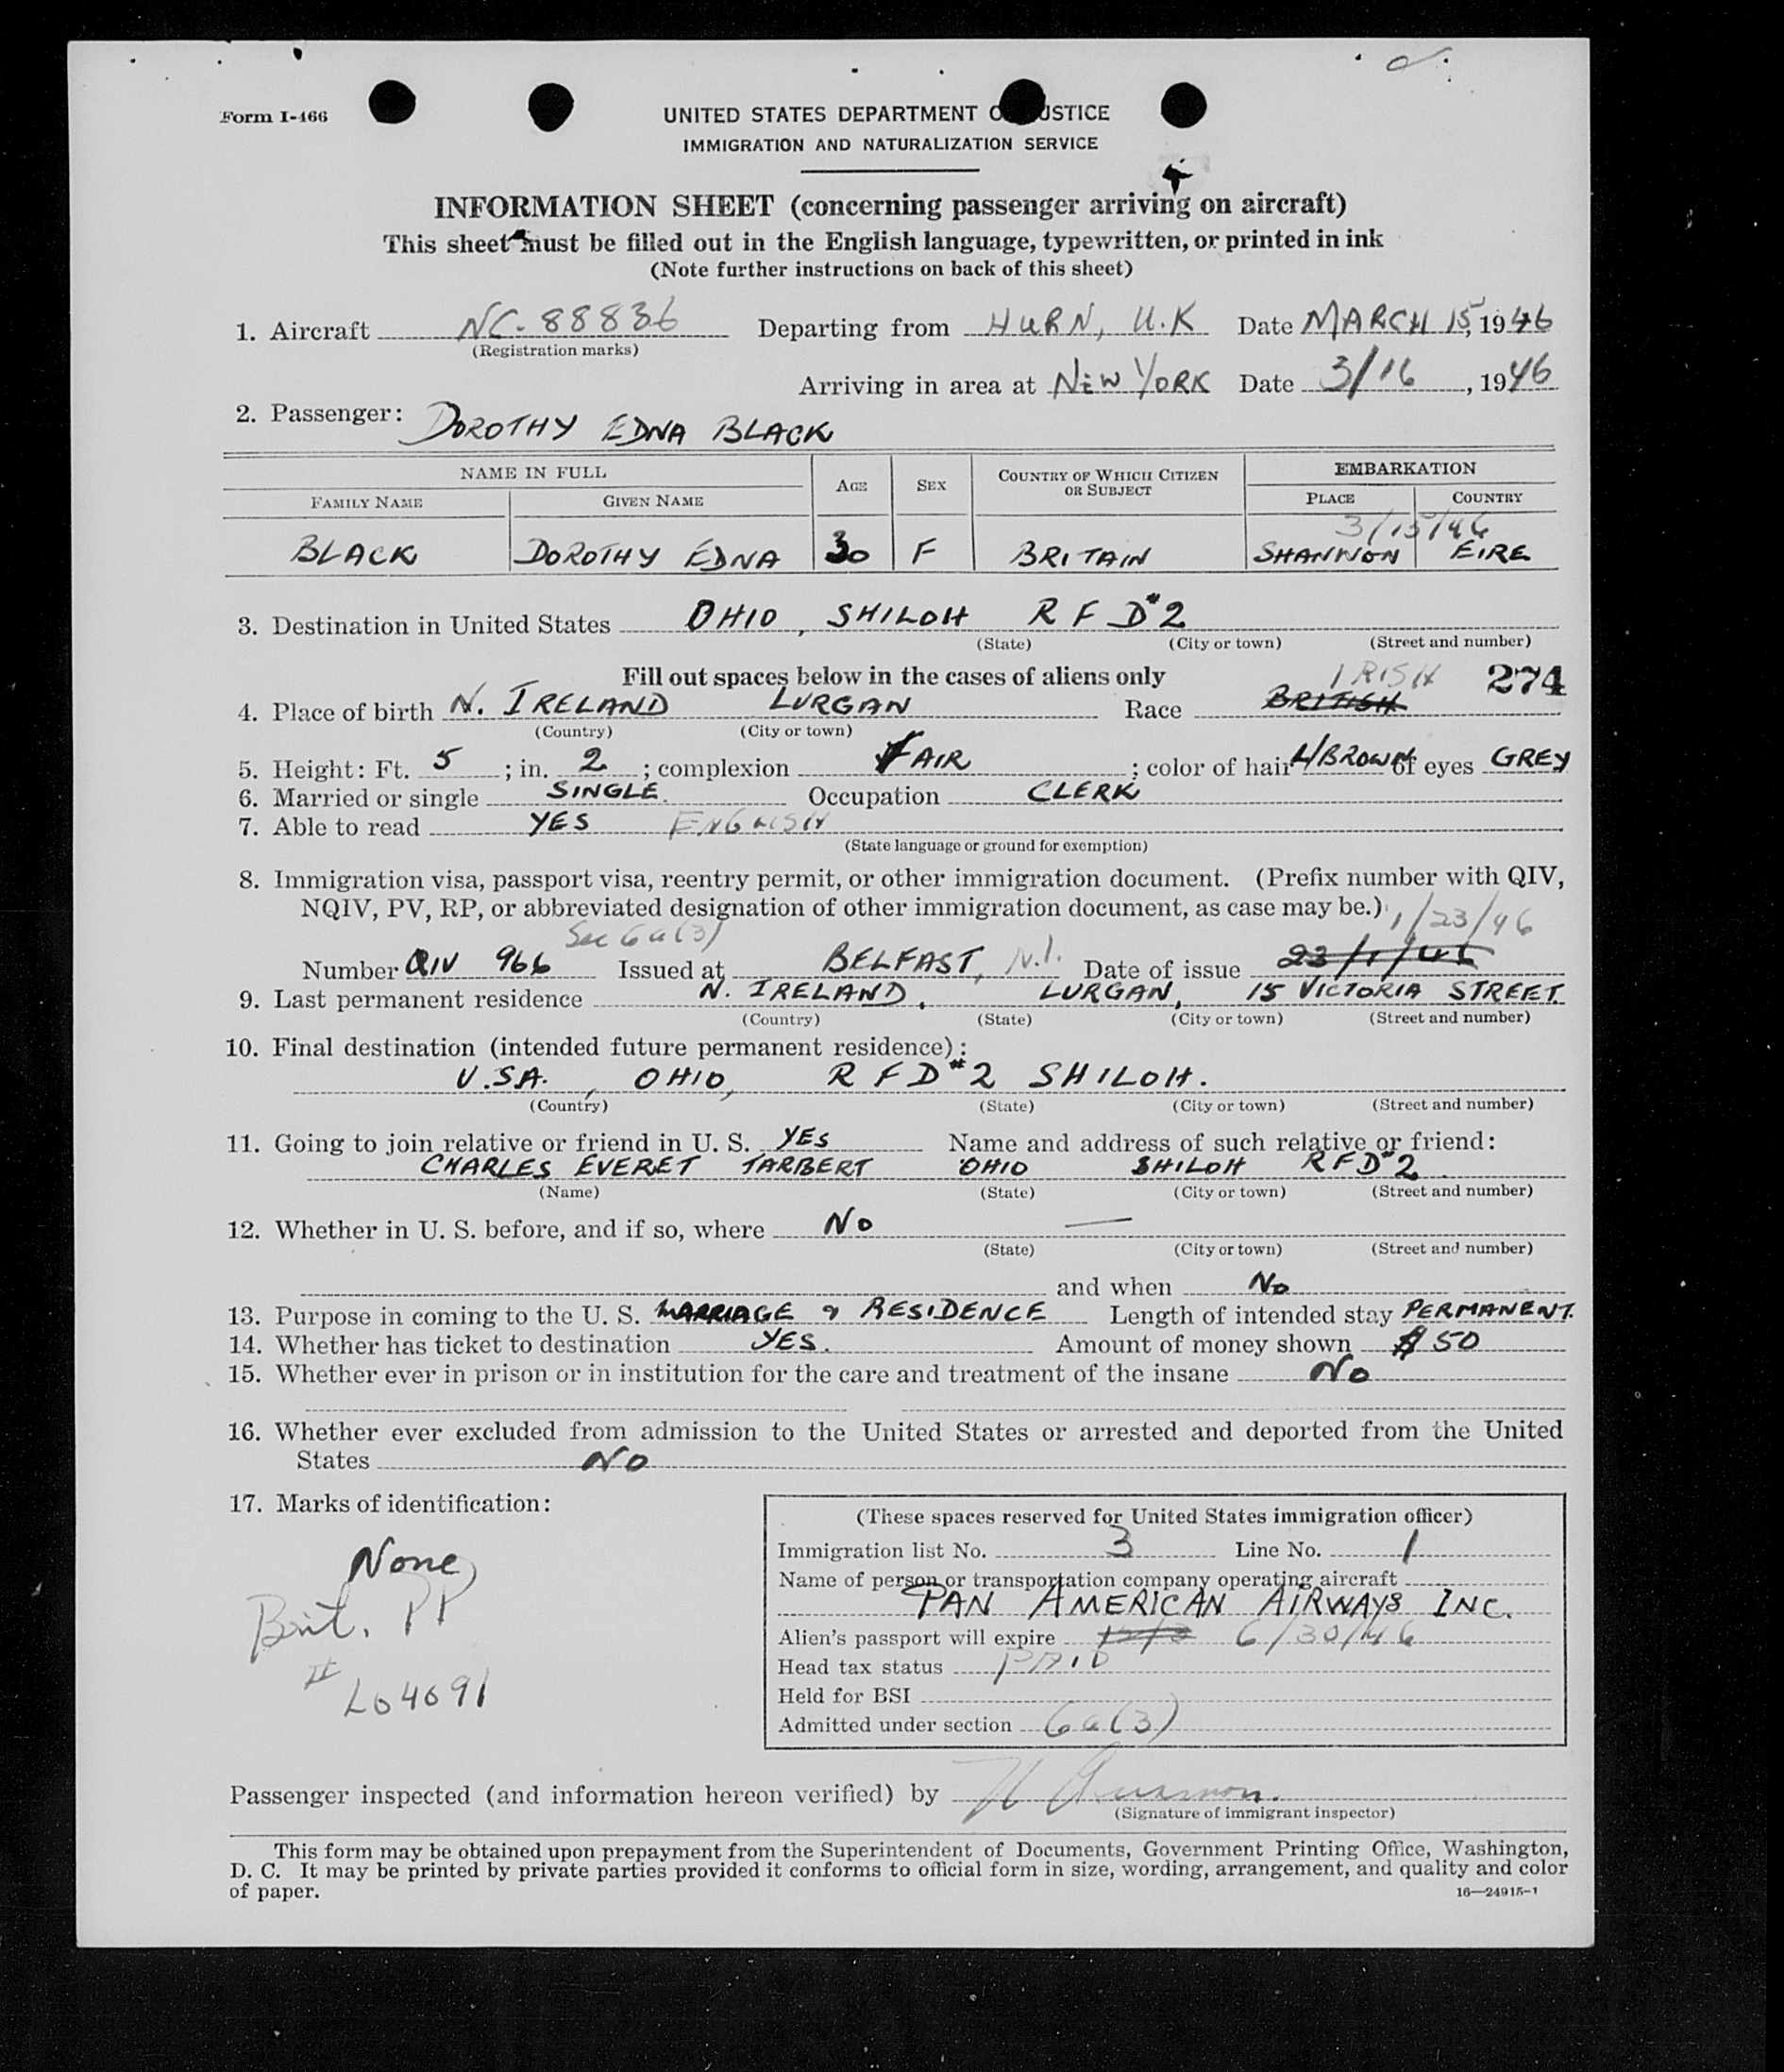 Form I-466
UNITED STATES DEPARTMENT O JUSTICE
IMMIGRATION AND NATURALIZATION SERVICE
INFORMATION SHEET (concerning passenger arriving on aircraft)
This sheet must be filled out in the English language, typewritten, or printed in ink
(Note further instructions on back of this sheet)
1. Aircraft NC-88836 Departing from HURN, U.K Date MARCH 15, 1946
(Registration marks)
Arriving in area at NEW YORK Date 3/16, 1946
2. Passenger: DOROTHY EDNA BLACK
NAME IN FULL AGE SEX COUNTRY OF WHICH CITIZEN OR SUBJECT EMBARKATION
FAMILY NAME GIVEN NAME PLACE COUNTRY
3/15/46
BLACK DOROTHY EDNA 30 F BRITAIN SHANNON EIRE
3. Destination in United States OHIO, SHILOH RFD #2
(State) (City or town) (Street and number)
Fill out spaces below in the cases of aliens only IRISH 274
4. Place of birth N. IRELAND LURGAN Race BRITISH
(Country) (City or town)
5. Height: Ft. 5; in. 2; complexion FAIR; color of hair L/BROWN of eyes GREY
6. Married or single SINGLE. Occupation CLERK
7. Able to read YES ENGLISH
(State language or ground for exemption)
8. Immigration visa, passport visa, reentry permit, or other immigration document. (Prefix number with QIV,
NQIV, PV, RP, or abbreviated designation of other immigration document, as case may be.) 1/23/46
Sec 6a(3)
Number QIV 966 Issued at BELFAST, N.I. Date of issue 23/1/46
9. Last permanent residence N. IRELAND, LURGAN, 15 VICTORIA STREET.
(Country) (State) (City or town) (Street and number)
10. Final destination (intended future permanent residence):
U.S.A., OHIO, RFD #2 SHILOH.
(Country) (State) (City or town) (Street and number)
11. Going to join relative or friend in U. S. YES Name and address of such relative or friend:
CHARLES EVERET TARBERT OHIO SHILOH RFD #2.
(Name) (State) (City or town) (Street and number)
12. Whether in U. S. before, and if so, where NO —
(State) (City or town) (Street and number)
and when NO
13. Purpose in coming to the U. S. MARRIAGE & RESIDENCE Length of intended stay PERMANENT.
14. Whether has ticket to destination YES. Amount of money shown $50
15. Whether ever in prison or in institution for the care and treatment of the insane NO
16. Whether ever excluded from admission to the United States or arrested and deported from the United
States NO
17. Marks of identification:
None
Brit. PP
# L04091
(These spaces reserved for United States immigration officer)
Immigration list No. 3 Line No. 1
Name of person or transportation company operating aircraft
PAN AMERICAN AIRWAYS INC.
Alien's passport will expire 6/30/46
Head tax status PAID
Held for BSI
Admitted under section 6a(3)
Passenger inspected (and information hereon verified) by
(Signature of immigrant inspector)
This form may be obtained upon prepayment from the Superintendent of Documents, Government Printing Office, Washington,
D. C. It may be printed by private parties provided it conforms to official form in size, wording, arrangement, and quality and color
of paper.
16—24915-1